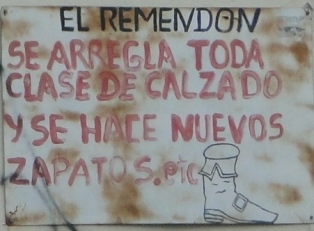 EL REMENDON
SE ARREGLA TODA
CLASE DE CALZADO
Y SE HACE NUEVOS
ZAPATOS.etc